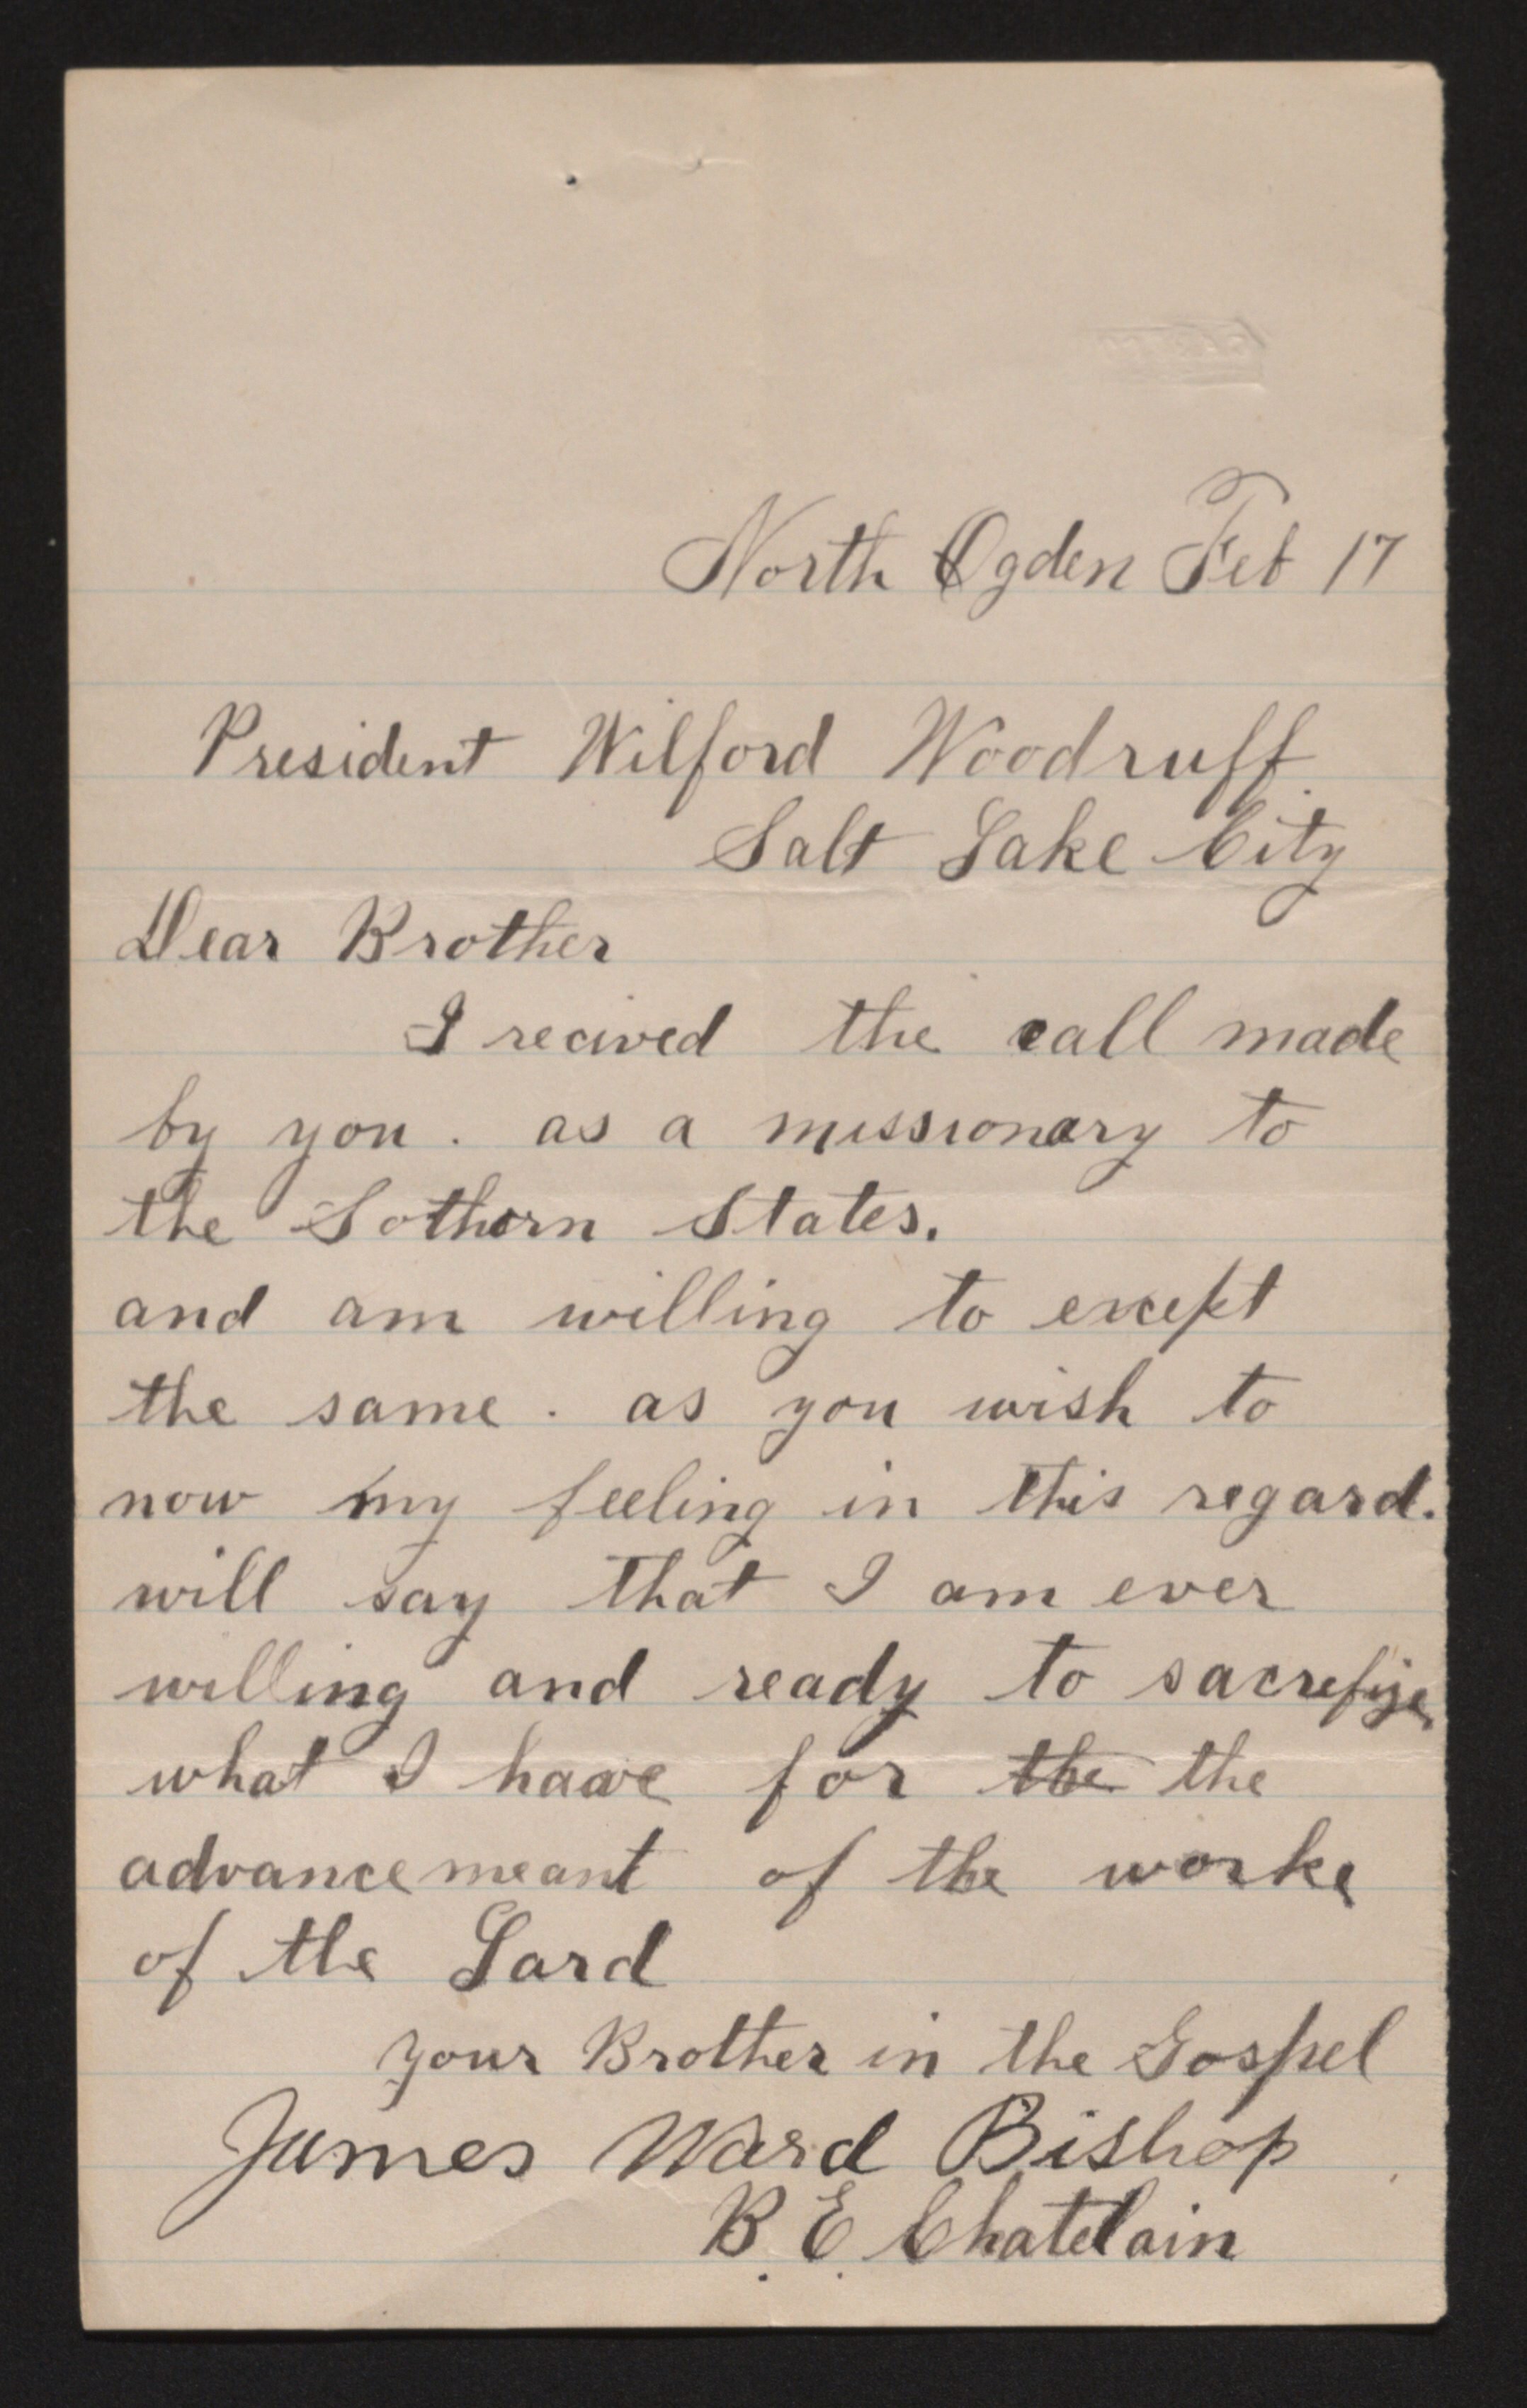 North Ogden Feb 17
President Wilford Woodruff
Salt Lake City
Dear Brother
I recived the call made
by you. as a missionary to
the Sothern States.
and am willing to except
the same. as you wish to
now my feeling in this regard.
will say that I am ever
willing and ready to sacrefize
what I haave for the the
advancemeant of the worke
of the Lard
your Brother in the Gospel
James Ward Bishop
B. E. Chatelain